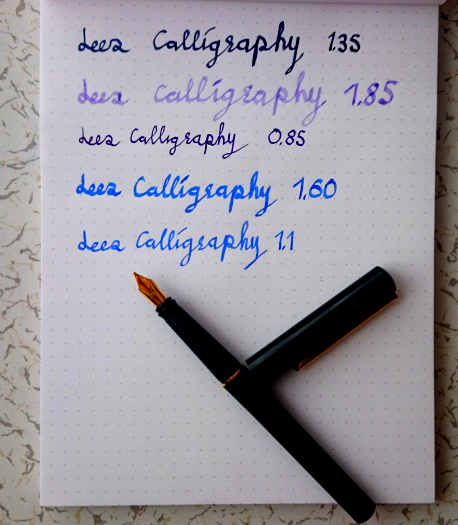 deez Calligraphy 1.35
deez Calligraphy 1.85
deez Calligraphy 0.85
deez Calligraphy 1.60
deez Calligraphy 1.1